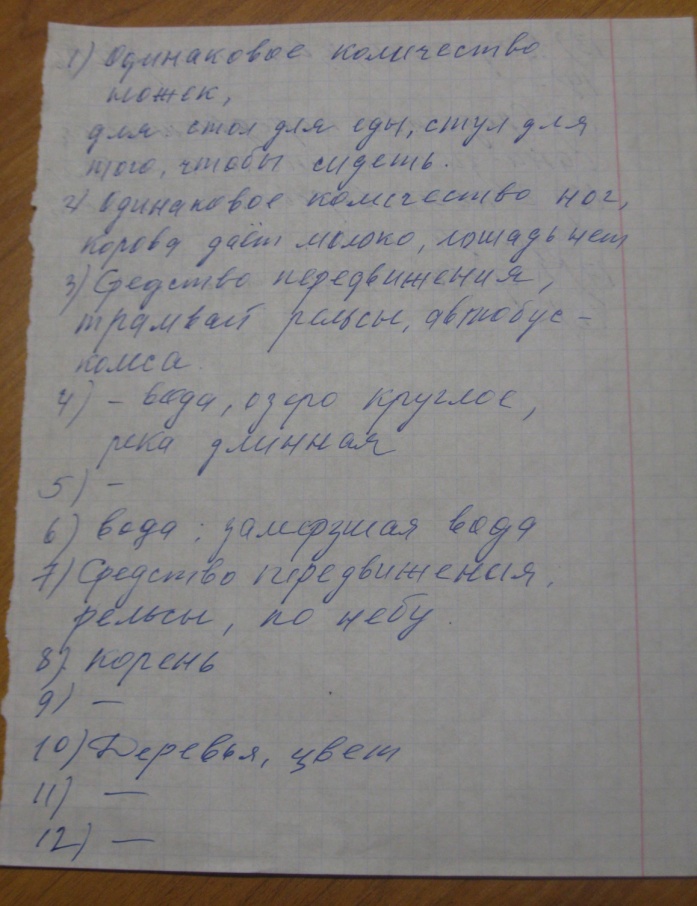 1) Одинаковое количество
ножек,
для стол для еды, стул для
того, чтобы сидеть.
2) Одинаковое количество ног,
корова даёт молоко, лошадь нет
3) Средство передвижения,
трамвай рельсы, автобус -
колеса.
4) - вода, озеро круглое,
река длинная
5) -
6) вода; замерзшая вода
7) Средство передвижения,
рельсы, по небу.
8) корень
9) —
10) Деревья, цвет
11) —
12) —